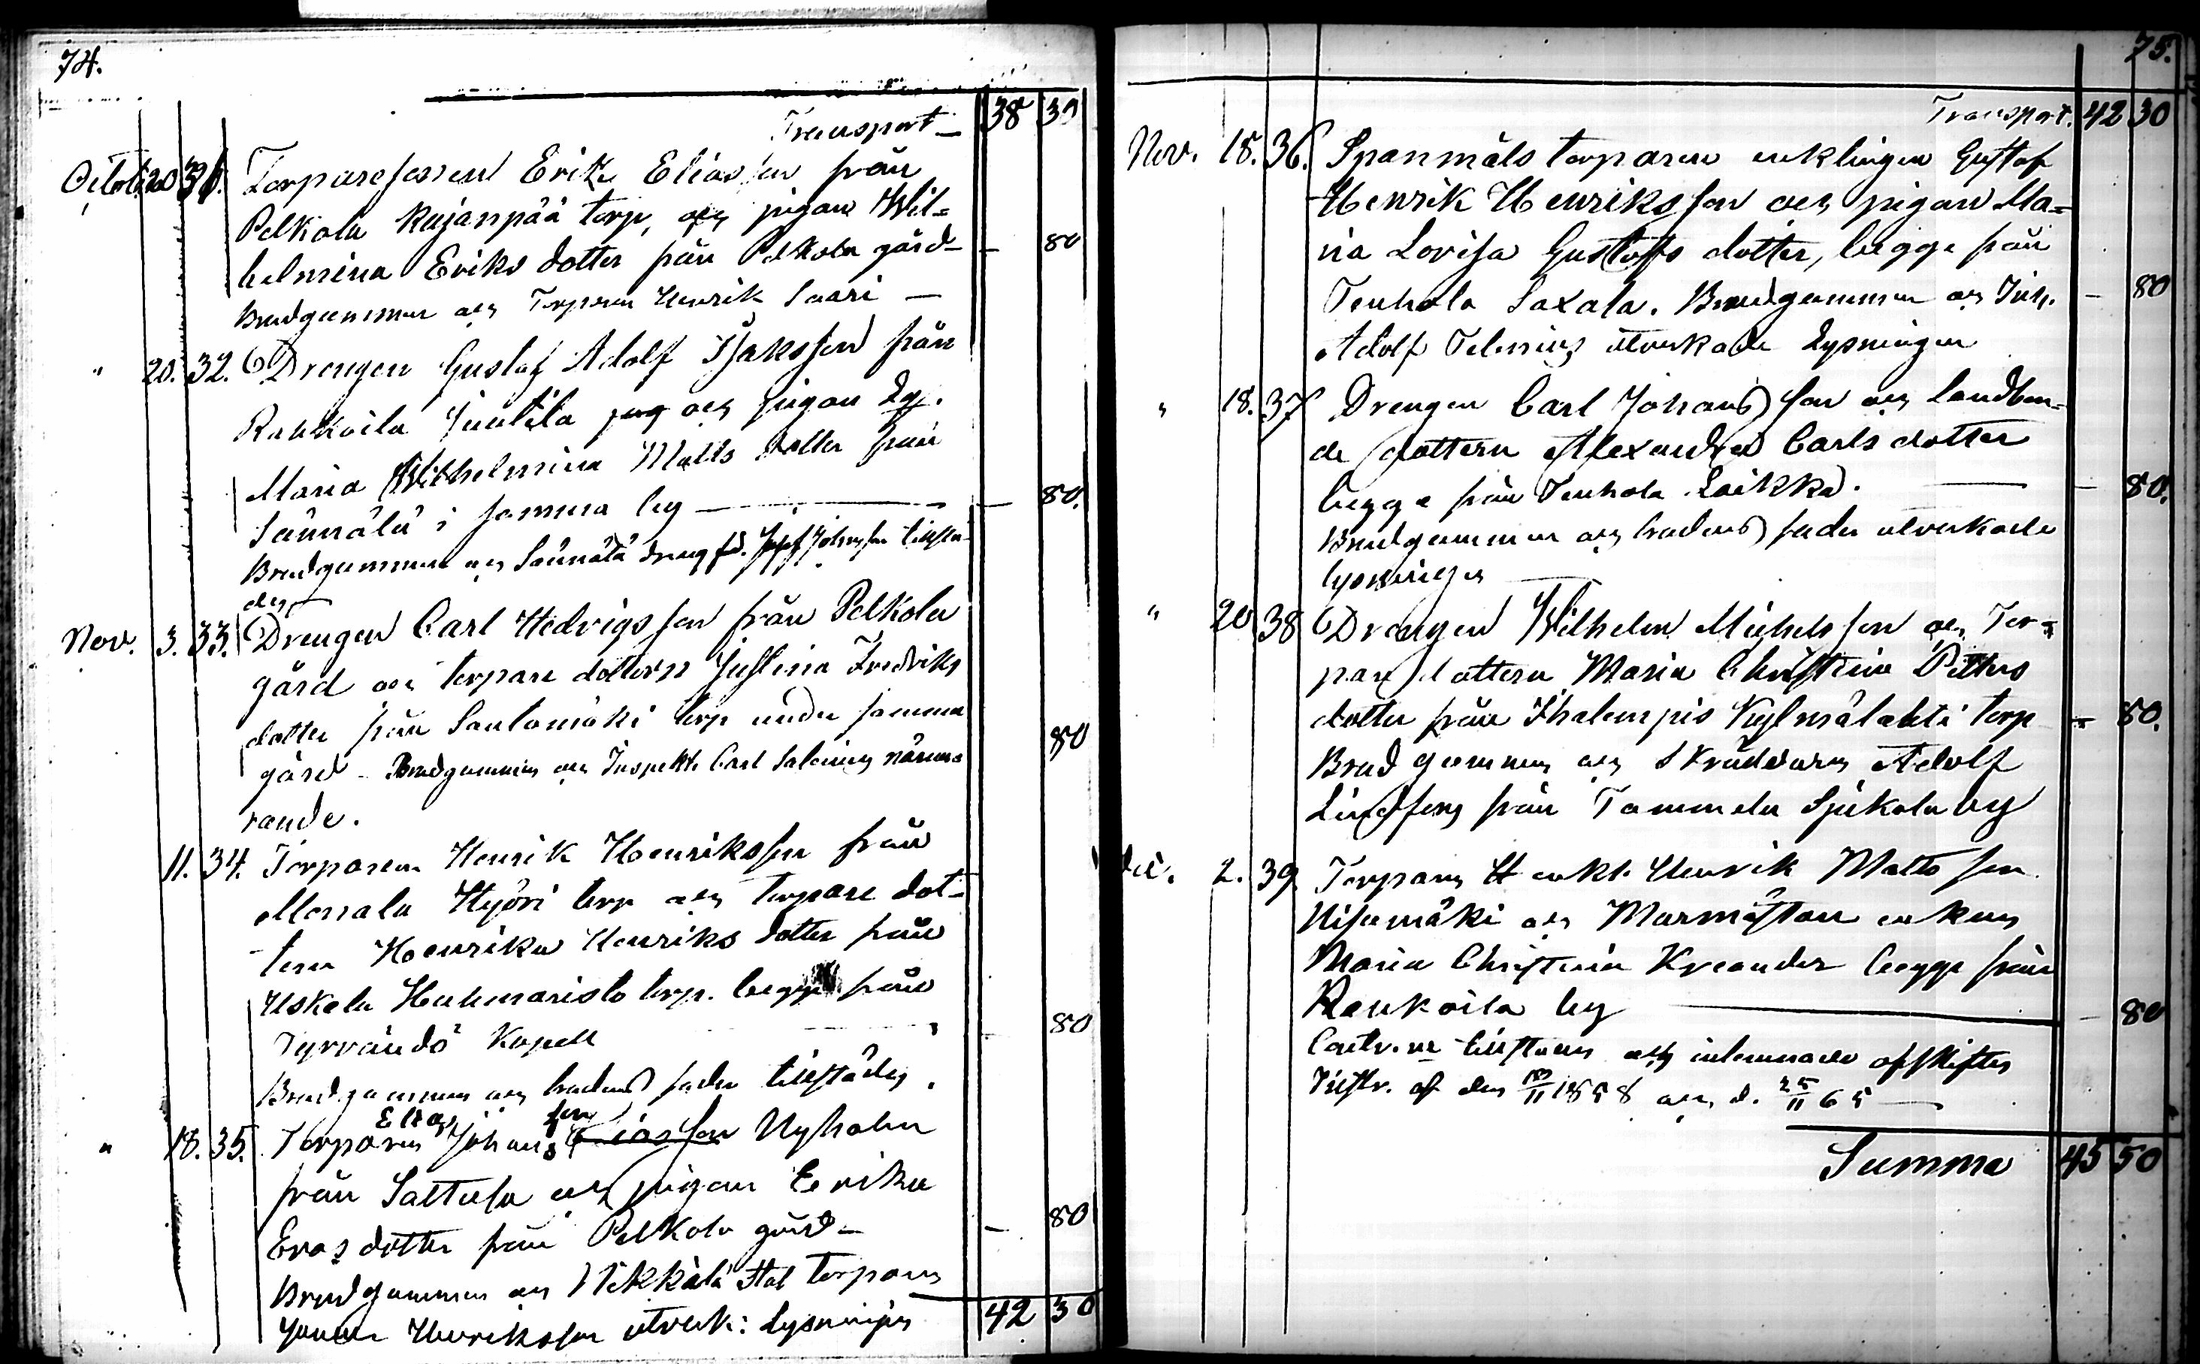 74.
Transport — 38 30
Octob. 20 31. Torparesonen Erik Eliasson från
Pelkola Kujanpää torp, och pigan Wil-
helmina Eriks dotter från Pelkola gård — 80
Brudgummen och Torparen Henrik Saari —
" 20. 32. Drengen Gustaf Adolf Isaksson från
Raukoila Juutila och pigan
Maria Wilhelmina Matts dotter från
Säünälä i samma by — — 80.
Brudgummen och Säünälä dreng Johansson tillstä-
des —
Nov. 3. 33. Drengen Carl Hedvigsson från Pelkola
gård och torpare dottern Justina Fredriks
dotter från Santamäki torp under samma 80
gård — Brudgummen och Inspekt. Carl Salenius närva-
rande.
11. 34. Torparen Henrik Henriksson från
Monala Hyöri torp och torpare dot-
tern Henrika Henriks dotter från
Uskela Huhmaristo torp. begge från
Tyrvändö Kapell — 80
Brudgummen och brudens fader tillstädes.
Elias son
" 18. 35. Torparen Johans Eliasson Nyholm
från Sattula och pigan Erika
Eras dotter från Pelkola gård — — 80
Brudgummen och torparen
Henriksson utverk: Lysningen 42 30
75.
Transport. 42 30
Nov. 18. 36. Spanmåls torparen enklingen Gustaf
Henrik Henriksson och pigan Ma-
ria Lovisa Gustafs dotter, begge från
Tenhola Saxala. Brudgummen och Inh. — 80
Adolf Telenius utverkade Lysningen
" 18. 37 Drengen Carl Johansson och landbon-
de dottern Alexandra Carls dotter
begge från Tenhola Laikka. — — 80.
Brudgummen och brudens fader utverkade
lysningen —
" 20 38 Drengen Wilhelm Michelsson och Tor-
pare dottern Maria Christina Petters
dotter från Ihalempis Kylmälahti torp — 80.
Brudgummen och Skräddaren Adolf
Lindfors från Tammela Sjukola by
Dec. 2. 39 Torparen Enkl. Henrik Mattsson
Uisumäki och Murmästare enkan
Maria Christina Kreander begge från
Raukoila by — — 80
Contr. tillstädes och inlemnade afskiftes
Instr. af den 1858 och d. 25/11 65 —
Summa 45 50